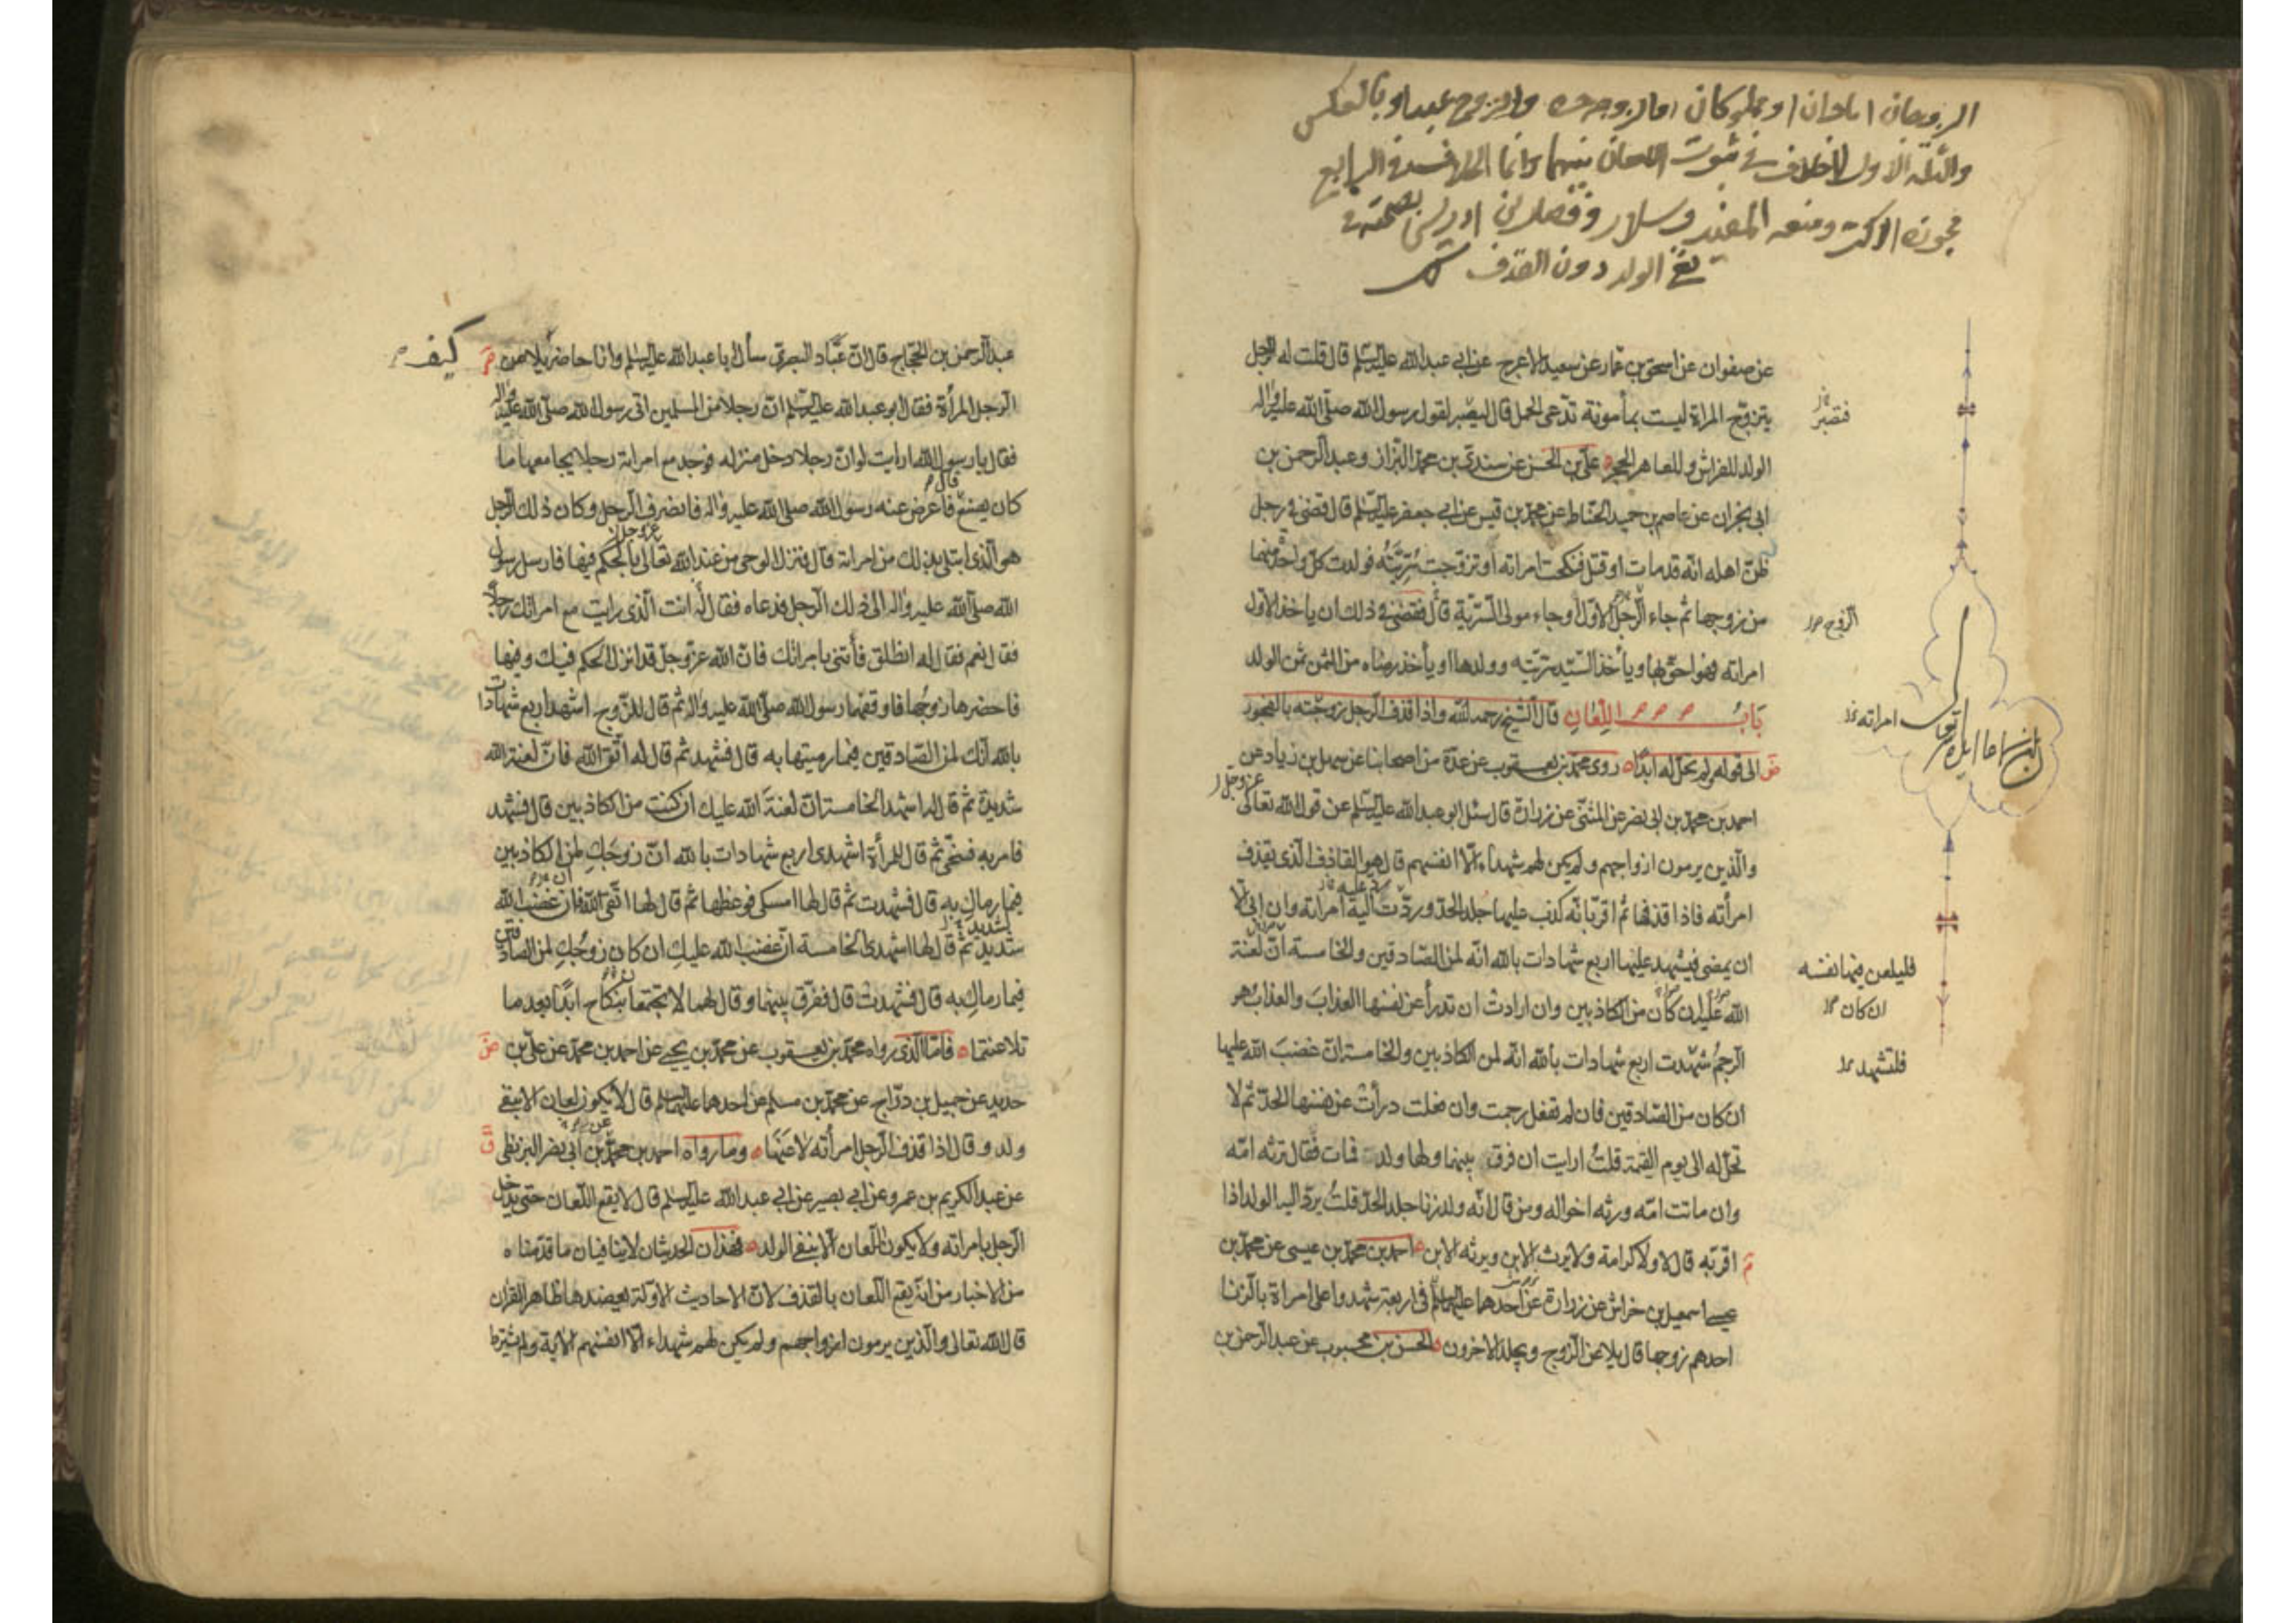 الزوجان اما حران او مملوكان اما الزوجة حرة والزوج عبد او بالعكس
والثلثة الاول لا خلاف في ثبوت اللعان بينهما وانما الخلاف في الرابع
فجوزه الاكثر ومنعه المفيد وسلار وفصل ابن ادريس بصحته في
نفي الولد دون القذف
عن صفوان عن اسحق بن عمار عن سعيد الاعرج عن ابي عبد الله عليه السلم قال قلت له الرجل
يتزوج المراة ليست بمأمونة تدعى الحمل قال ليصبر لقول رسول الله صلى الله عليه واله
فتصبر
الولد للفراش وللعاهر الحجر علي بن الحسن عن سندي بن محمد البزاز وعبد الرحمن بن
ابي نجران عن عاصم بن حميد الحناط عن محمد بن قيس عن ابي جعفر عليه السلم قال قضى في رجل
ظن اهله انه قد مات او قتل فنكحت امراته او تزوجت سريته فولدت كل واحدة منهما
من زوجها ثم جاء الرجل الاول او جاء مولى السرية قال فقضى في ذلك ان ياخذ الاول
الزوج
امراته فهو احق بها ويأخذ السيد سريته وولدها او يأخذ رضاه من الثمن ثمن الولد
باب اللعان قال الشيخ رحمه الله واذا قذف الرجل زوجته بالفجور
امراته
الى قوله ولم تحل له ابدا روى محمد بن يعقوب عن عدة من اصحابنا عن سهل بن زياد عن
احمد بن محمد بن ابي نصر عن المثنى عن زرارة قال سئل ابو عبد الله عليه السلم عن قول الله تعالى
عز وجل
والذين يرمون ازواجهم ولم يكن لهم شهداء الا انفسهم قال هو القاذف الذي يقذف
امرأته فاذا قذفها ثم اقر بانه كذب عليها جلد الحد وردت اليه امراته وان ابى الا
ان يمضى فيشهد عليها اربع شهادات بالله انه لمن الصادقين والخامسة ان لعنة
فليلعن فيها نفسه
الله عليه ان كان من الكاذبين وان ارادت ان تدرأ عن نفسها العذاب والعذاب هو
ان كان
الرجم شهدت اربع شهادات بالله انه لمن الكاذبين والخامسة ان غضب الله عليها
فلتشهد
ان كان من الصادقين فان لم تفعل رجمت وان فعلت درأت عن نفسها الحد ثم لا
تحل له الى يوم القيمة قلت ارايت ان فرق بينهما ولها ولد فمات فقال ترثه امه
وان ماتت امه ورثه اخواله ومن قال انه ولد زنا جلد الحد قلت يرد اليه الولد اذا
اقر به قال لا ولا كرامة ولا يرث الابن ويرثه الابن احمد بن محمد بن عيسى عن محمد بن
عيسى اسمعيل بن خراش عن زرارة عن احدهما عليهما السلم في اربعة شهدوا على امراة بالزنا
احدهم زوجها قال يلاعن الزوج ويجلد الاخرون الحسن بن محبوب عن عبد الرحمن بن
عبد الرحمن بن الحجاج قال ان عباد البصري سأل ابا عبد الله عليه السلم وانا حاضر يلاعن
كيف
الرجل المرأة فقال ابو عبد الله عليه السلم ان رجلا من المسلمين اتى رسول الله صلى الله عليه واله
فقال يا رسول الله ارايت لو ان رجلا دخل منزله فوجد مع امراته رجلا يجامعها ما
كان يصنع قال فاعرض عنه رسول الله صلى الله عليه واله فانصرف الرجل وكان ذلك الرجل
هو الذي ابتلى بذلك من امراته قال فنزل الوحى من عند الله تعالى بالحكم فيها فارسل رسول
عز وجل
الله صلى الله عليه واله الى ذلك الرجل فدعاه فقال له انت الذي رايت مع امراتك رجلا
فقال نعم فقال له انطلق فأتني بامراتك فان الله عز وجل قد انزل الحكم فيك وفيها
فاحضرها زوجها فاوقفهما رسول الله صلى الله عليه واله ثم قال للزوج اشهد اربع شهادات
بالله انك لمن الصادقين فيما رميتها به قال فشهد ثم قال له اتق الله فان لعنة الله
شديدة ثم قال له اشهد الخامسة ان لعنة الله عليك ان كنت من الكاذبين قال فشهد
فامر به فنحى ثم قال للمرأة اشهدى اربع شهادات بالله ان زوجك لمن الكاذبين
فيما رماك به قال فشهدت ثم قال لها امسكى فوعظها ثم قال لها اتقى الله فان غضب الله
شديد ثم قال لها اشهدى الخامسة ان غضب الله عليك ان كان زوجك لمن الصادقين
فيما رماك به قال فشهدت قال ففرق بينهما وقال لهما لا تجتمعا بنكاح ابدا بعد ما
تلاعنتما فاما الذي رواه محمد بن يعقوب عن محمد بن يحيى عن احمد بن محمد عن علي بن
حديد عن جميل بن دراج عن محمد بن مسلم عن احدهما عليهما السلم قال لا يكون لعان الا بنفي
ولد وقال اذا قذف الرجل امرأته لاعنها وما رواه احمد بن محمد بن ابي نصر البزنطى
عن عبد الكريم بن عمرو عن ابي بصير عن ابي عبد الله عليه السلم قال لا يقع اللعان حتى يدخل
الرجل بامراته ولا يكون اللعان الا بنفي الولد فهذان الحديثان لا ينافيان ما قدمناه
من الاخبار من انه يقع اللعان بالقذف لان الاحاديث الاولة يعضدها ظاهر القران
قال الله تعالى والذين يرمون ازواجهم ولم يكن لهم شهداء الا انفسهم الاية ولم يشترط